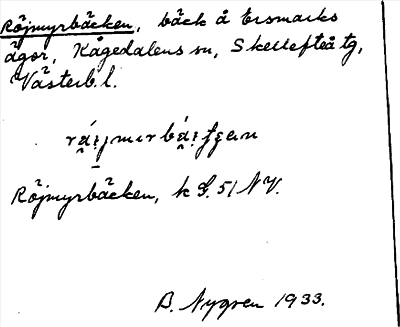 Röjmyrbäcken, bäck å Ersmarks
ägor, Kågedalens sn, Skellefteå tg,
Västerb. l.
Röjmyrbäcken, k G. 51 NV.
B. Nygren 1933.